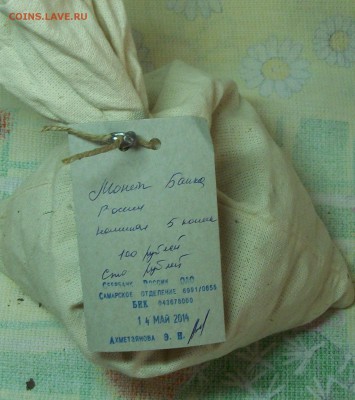 COINS.LAVE.RU
Монет Банка
России
номинал 5 копеек
100 рублей
Сто рублей
Сбербанк России ОАО
Самарское отделение 6991/0650
БИК 043678000
14 МАЙ 2014
Ахметзянова Э. Н.